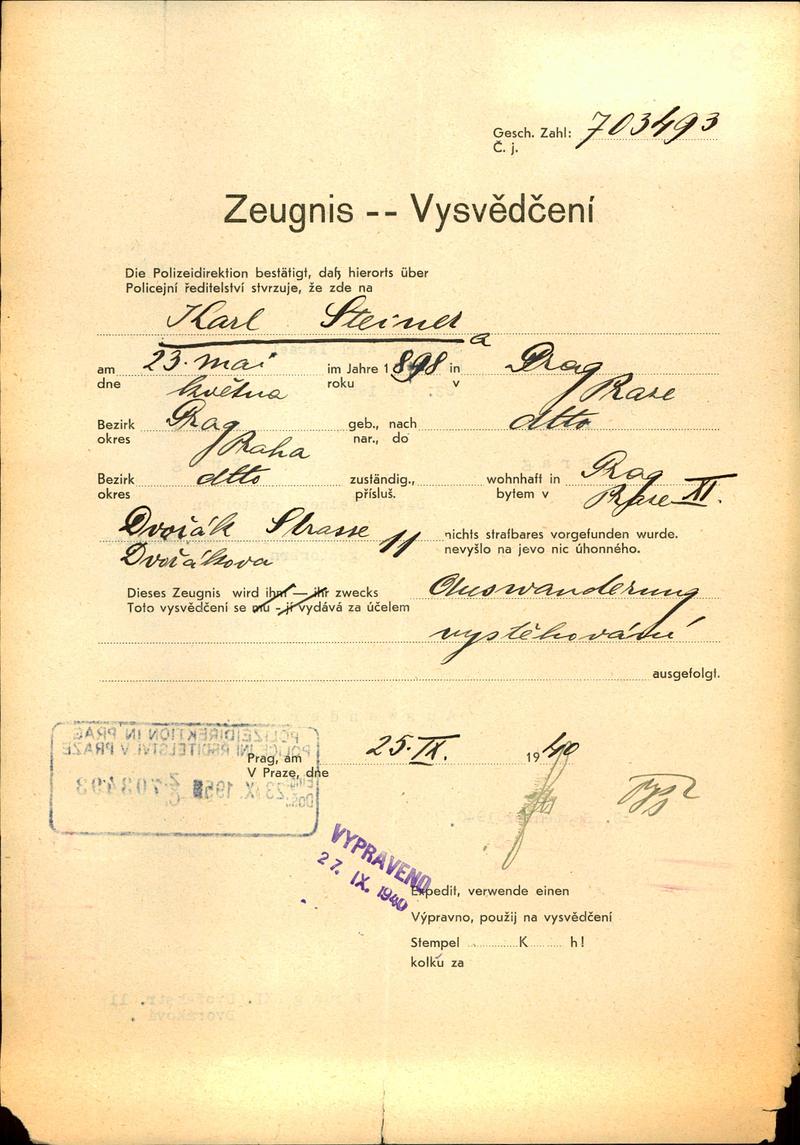 Gesch. Zahl: 703493
Č. j.
Zeugnis -- Vysvědčení
Die Polizeidirektion bestätigt, daß hierorts über
Policejní ředitelství stvrzuje, že zde na
Karl Steiner
a
am 23. mai im Jahre 1898 in Prag
dne května roku v Praze
Bezirk Prag geb., nach dtto
okres Praha nar., do
Bezirk dtto zuständig., wohnhaft in Prag
okres přísluš. bytem v Praze XI.
Dvořák Strasse 11 nichts strafbares vorgefunden wurde.
Dvořákova nevyšlo na jevo nic úhonného.
Dieses Zeugnis wird ihm — ihr zwecks Auswanderung
Toto vysvědčení se mu - jí vydává za účelem
vystěhování
ausgefolgt.
POLIZEIDIREKTION IN PRAG
POLICEJNÍ ŘEDITELSTVÍ V PRAZE
703493
Prag, am 25. IX. 1940
V Praze, dne
VYPRAVENO
27. IX. 1940
Expedit, verwende einen
Výpravno, použij na vysvědčení
Stempel K h!
kolku za